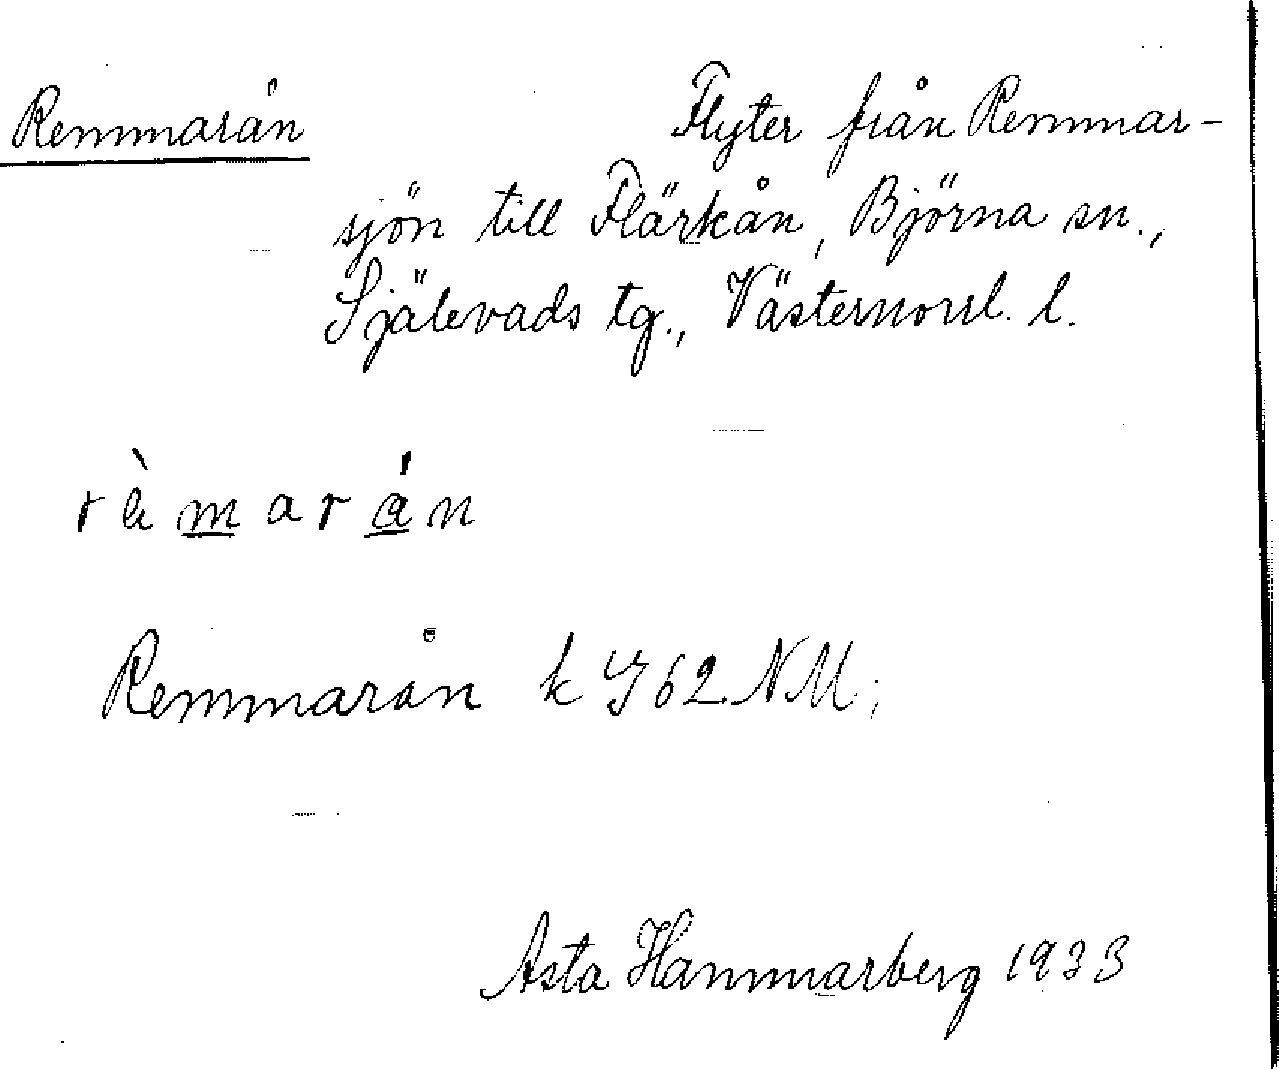 Remmarån
Flyter från Remmar-
sjön till Flärkån, Björna sn.,
Själevads tg., Västernorrl. l.
rὲmarán
Remmarån k Y 62 NM;
Asta Hammarberg 1933